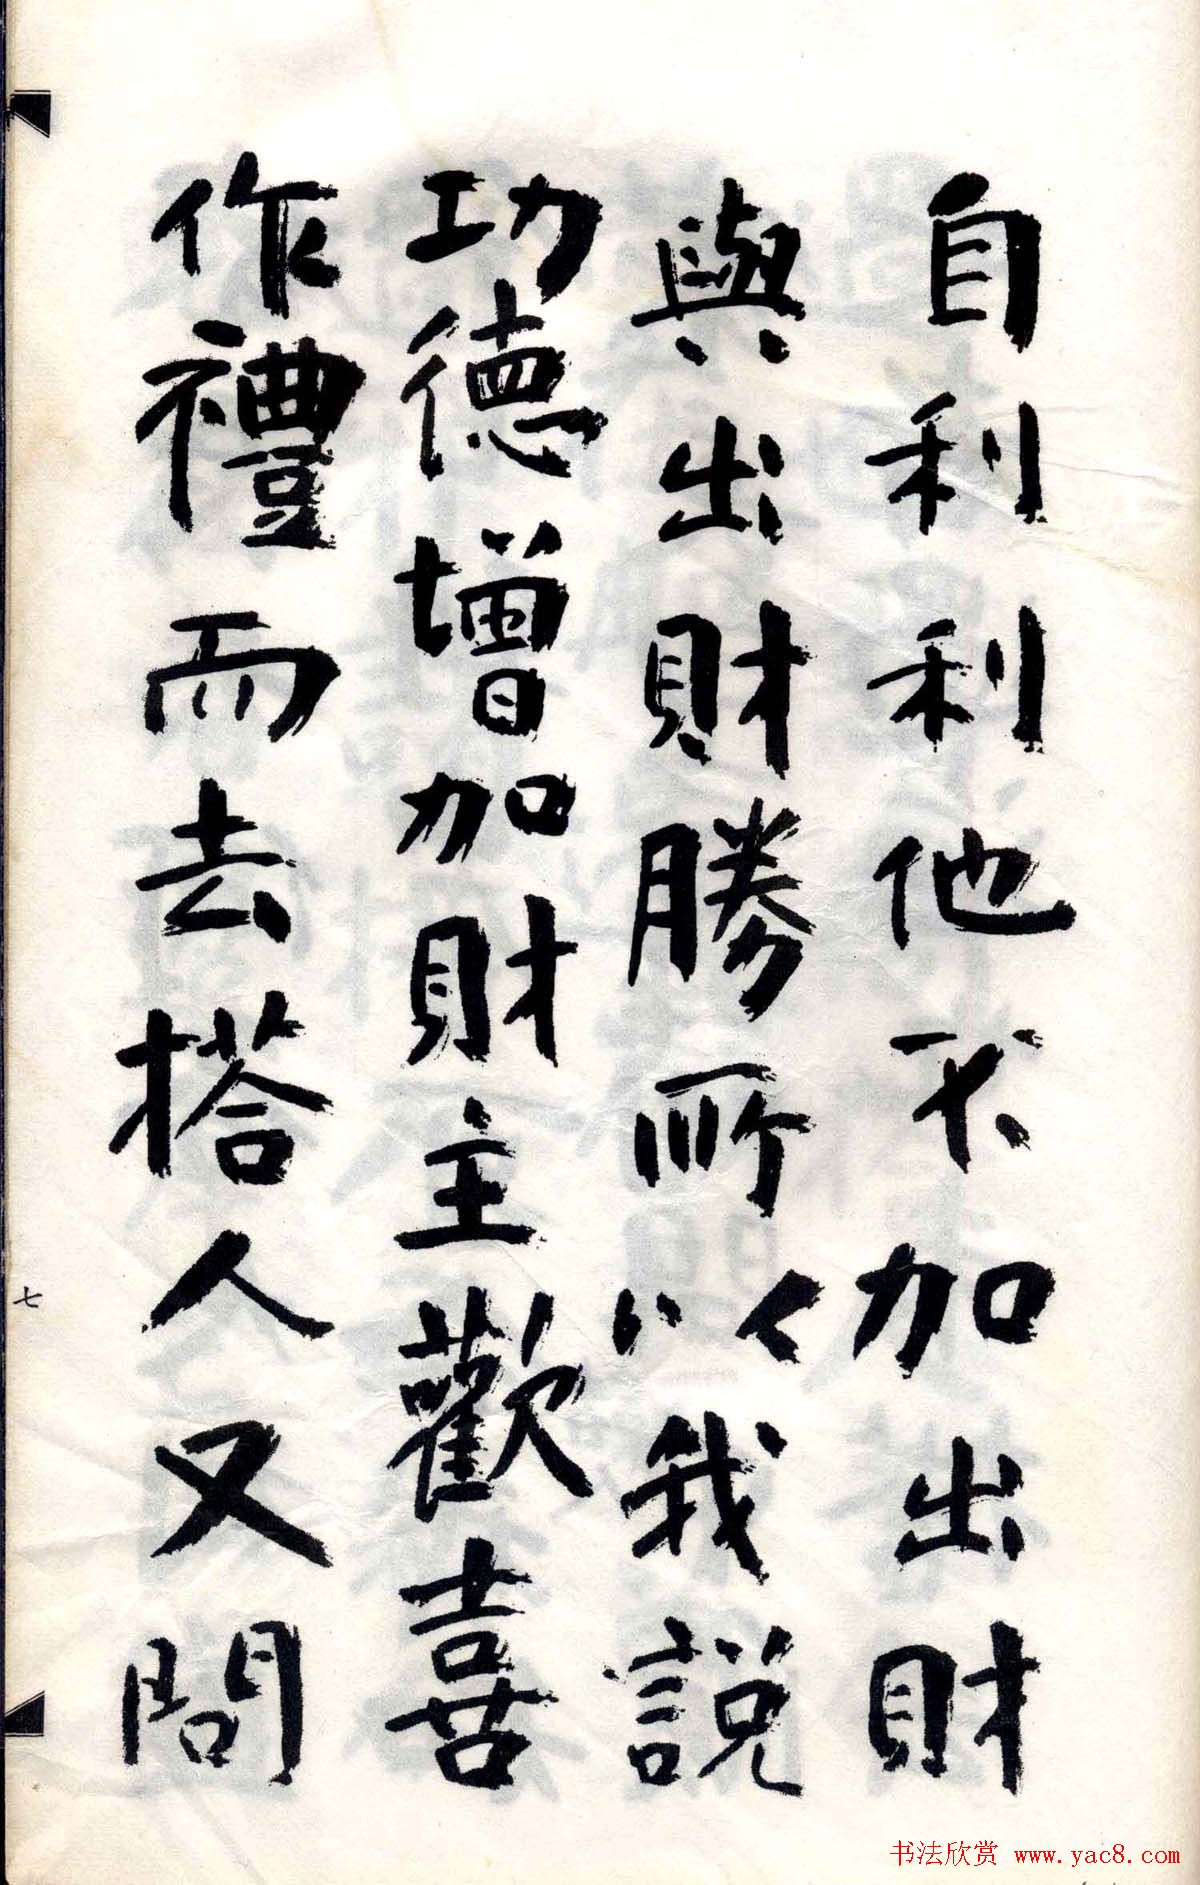 自利利他不加出財
與出財勝所以我説
功德增加財主歡喜
作禮而去搭人又問
七
书法欣赏 www.yac8.com